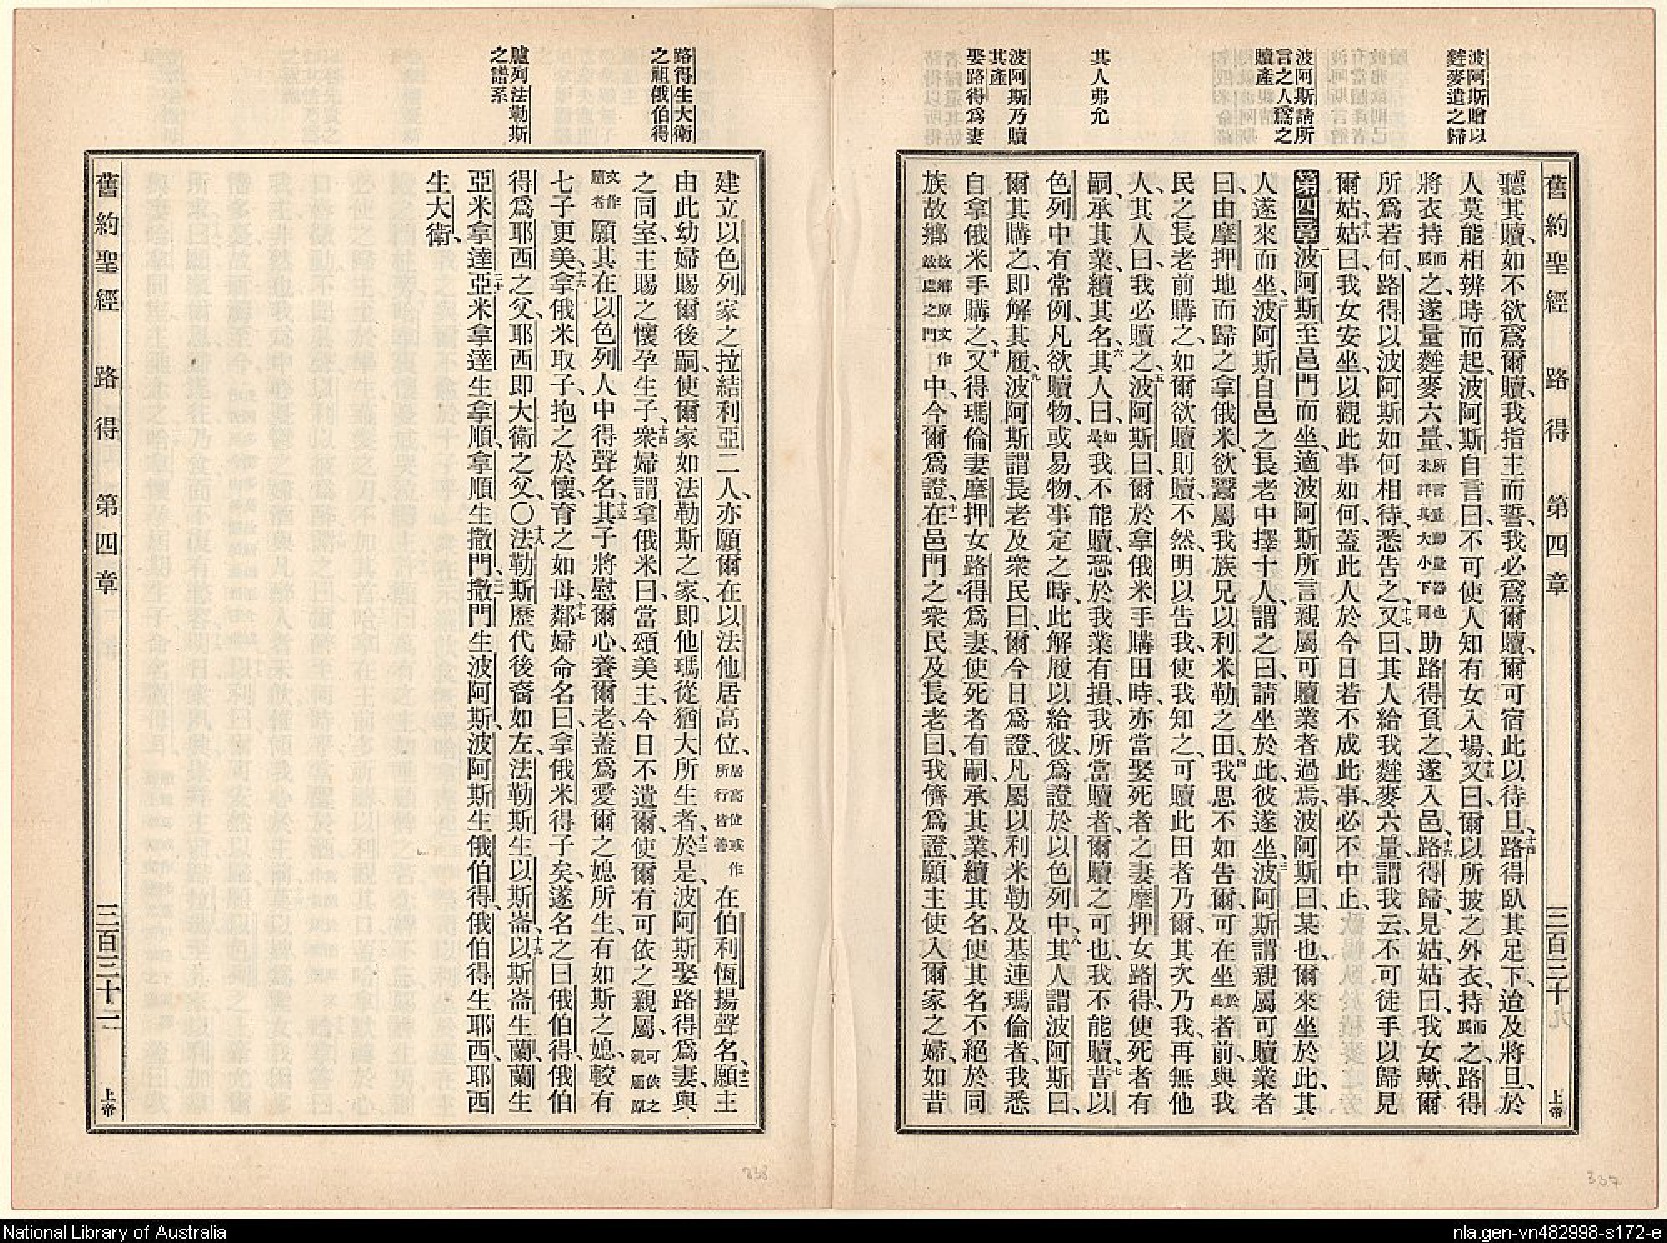 波阿斯贈以
麰麥遣之歸
波阿斯請所
言之人爲之
贖產
其人弗允
波阿斯乃贖
其產
娶路得爲妻
舊約聖經 路得 第四章 三百三十九 上帝
聽其贖、如不欲爲爾贖、我指主而誓、我必爲爾贖、爾可宿此以待旦、十四路得臥其足下、迨及將旦、於
人莫能相辨時而起、波阿斯自言曰、不可使人知有女入場、十五又曰、爾以所披之外衣、持而展之、路得
將衣持而展之、遂量麰麥六量、所言量卽量器也未詳其大小下同助路得負之、遂入邑、十六路得歸見姑、姑曰、我女歟、爾
所爲若何、路得以波阿斯如何相待、悉告之、十七又曰、其人給我麰麥六量、謂我云、不可徒手以歸見
爾姑、十八姑曰、我女安坐、以觀此事如何、蓋此人於今日若不成此事、必不中止、
第四章 一波阿斯至邑門而坐、適波阿斯所言親屬可贖業者過焉、波阿斯曰、某也、爾來坐於此、其
人遂來而坐、二波阿斯自邑之長老中擇十人、謂之曰、請坐於此、彼遂坐、三波阿斯謂親屬可贖業者
曰、由摩押地而歸之拿俄米、欲鬻屬我族兄以利米勒之田、四我思不如告爾、可在坐於此者前、與我
民之長老前購之、如爾欲贖則贖、不然、明以告我、使我知之、可贖此田者乃爾、其次乃我、再無他
人、其人曰、我必贖之、五波阿斯曰、爾於拿俄米手購田時、亦當娶死者之妻摩押女路得、使死者有
嗣、承其業、續其名、六其人曰、如是我不能贖、恐於我業有損、我所當贖者、爾贖之可也、我不能贖、七昔以
色列中有常例、凡欲贖物、或易物、事定之時、此解履以給彼、爲證於以色列中、八其人謂波阿斯曰、
爾其購之、卽解其履、九波阿斯謂長老及衆民曰、爾今日爲證、凡屬以利米勒及基連瑪倫者、我悉
自拿俄米手購之、十又得瑪倫妻摩押女路得爲妻、使死者有嗣、承其業、續其名、使其名不絕於同
族故鄉故鄉原文作故處之門中、今爾爲證、十一在邑門之衆民及長老曰、我儕爲證、願主使入爾家之婦、如昔
路得生大衛
之祖俄伯得
臚列法勒斯
之譜系
建立以色列家之拉結利亞二人、亦願爾在以法他居高位、居高位或作所行皆善在伯利恆揚聲名、十二願主
由此幼婦賜爾後嗣、使爾家如法勒斯之家、卽他瑪從猶大所生者、十三於是波阿斯娶路得爲妻、與
之同室、主賜之懷孕生子、十四衆婦謂拿俄米曰、當頌美主、今日不遺爾、使爾有可依之親屬、可依之親屬原
文作贖者願其在以色列人中得聲名、十五其子將慰爾心、養爾老、蓋爲愛爾之媳所生、有如斯之媳、較有
七子更美、十六拿俄米取子、抱之於懷、育之如母、十七鄰婦命名曰、拿俄米得子矣、遂名之曰俄伯得、俄伯
得爲耶西之父、耶西卽大衛之父、〇十八法勒斯歷代後裔如左、法勒斯生以斯崙、十九以斯崙生蘭、蘭生
亞米拿達、二十亞米拿達生拿順、拿順生撒門、二一撒門生波阿斯、波阿斯生俄伯得、俄伯得生耶西、耶西
生大衛、
舊約聖經 路得 第四章 上帝
838
337
National Library of Australia
nla.gen-vn482998-s172-e